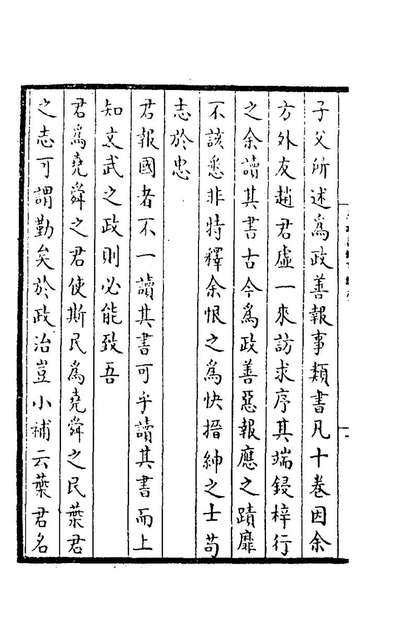 子父所述為政善報事類書凡十卷因余
方外友趙君虛一來訪求序其端鋟梓行
之余讀其書古今為政善惡報應之蹟靡
不該悉非特釋余恨之為快搢紳之士苟
志於忠
君報國者不一讀其書可乎讀其書而上
知文武之政則必能致吾
君為堯舜之君使斯民為堯舜之民葉君
之志可謂勤矣於政治豈小補云葉君名